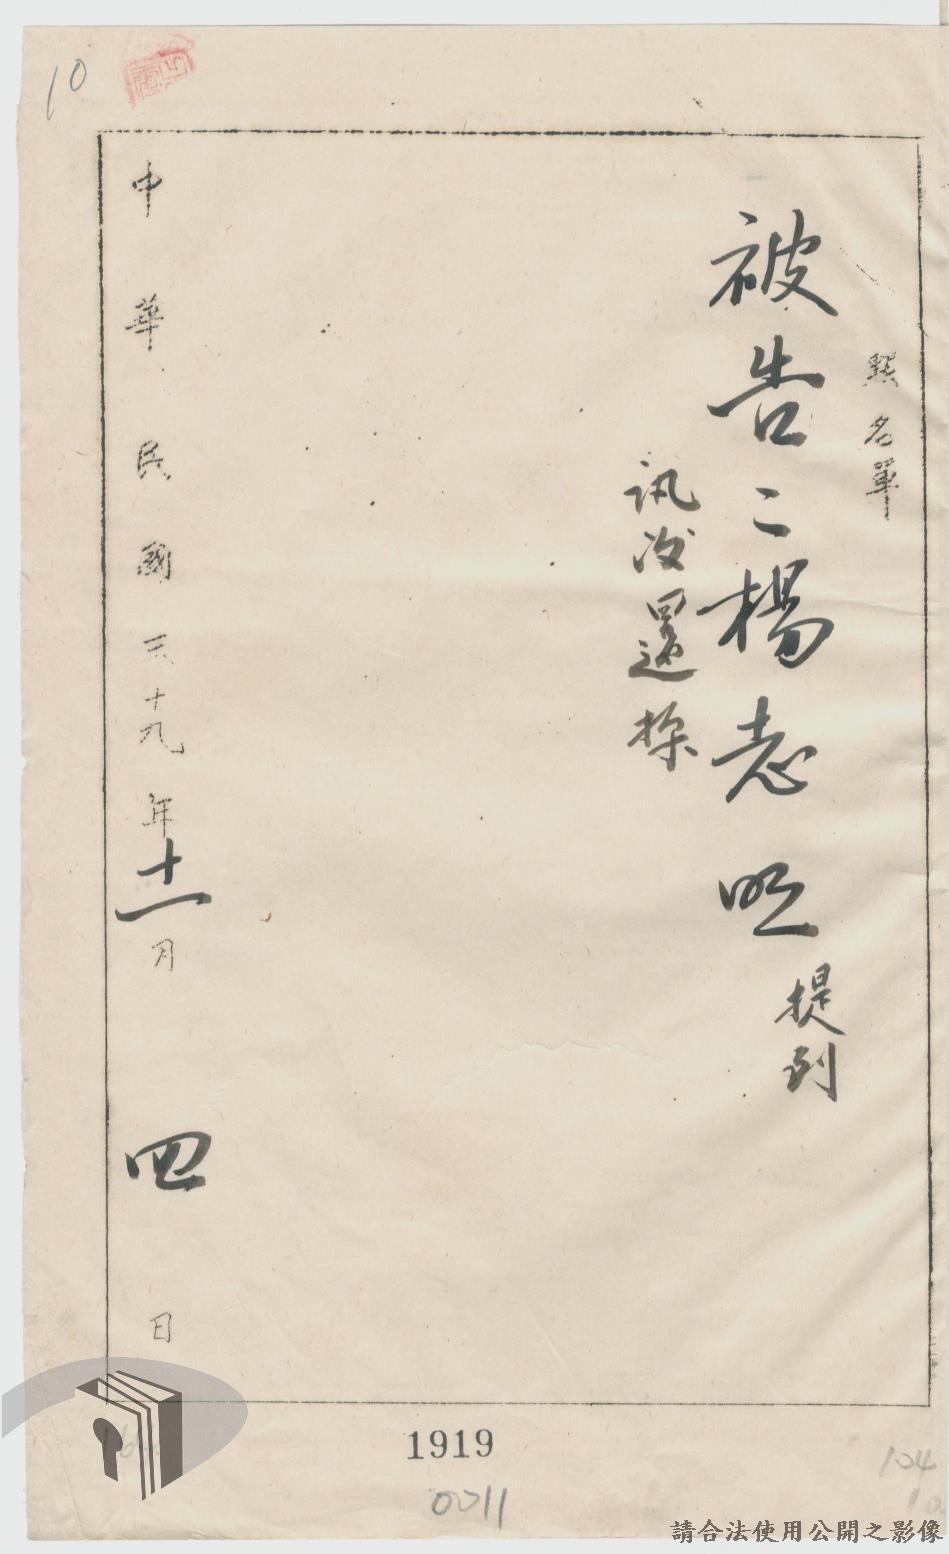 點名單
被告:楊志旺
提到
訊後還押
中華民國三十九年十一月四日
10
1919
0011
104
請合法使用公開之影像